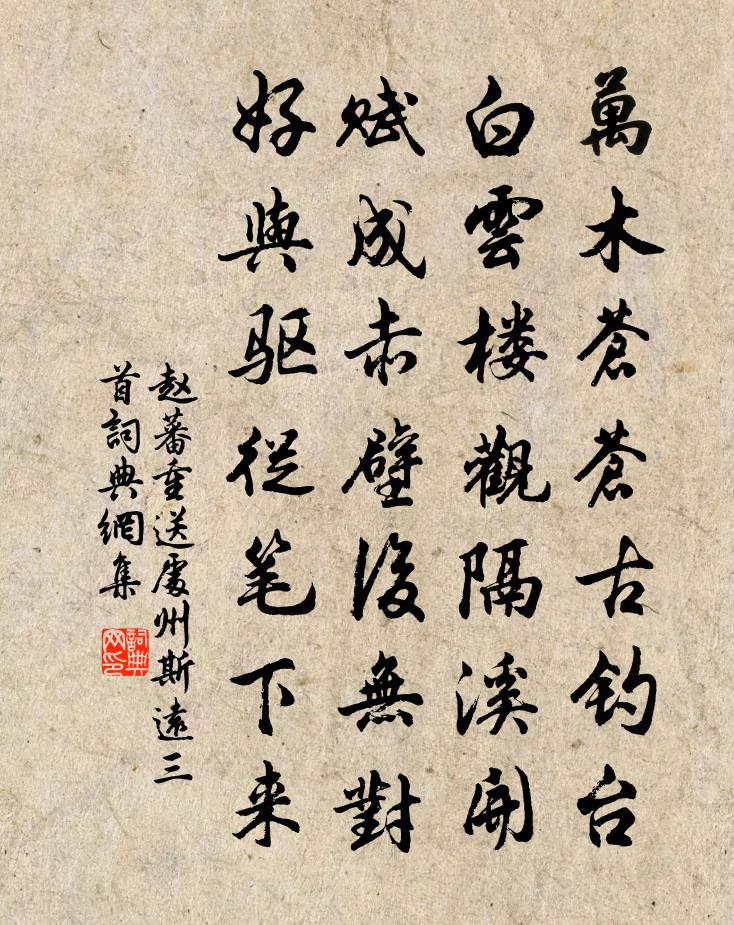 萬木蒼蒼古钓台
白雲楼觀隔溪開
赋成赤壁後無對
好與驱從笔下来
赵蕃重送處州斯遠三
首詞典網集
詞典
网印